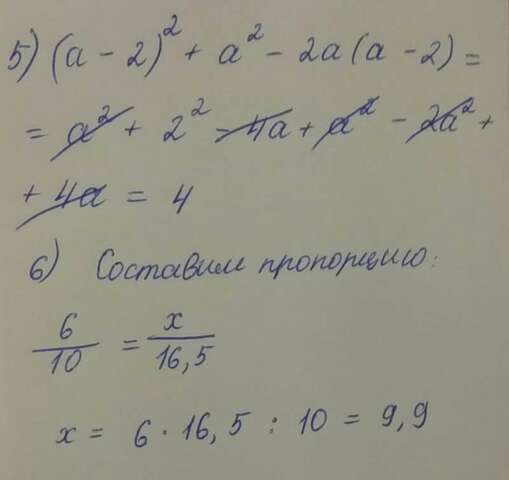 5) (a - 2)² + a² - 2a (a - 2) =
= a² + 2² - 4a + a² - 2a² +
+ 4a = 4
6) Составим пропорцию:
6/10 = x/16,5
x = 6 · 16,5 : 10 = 9,9